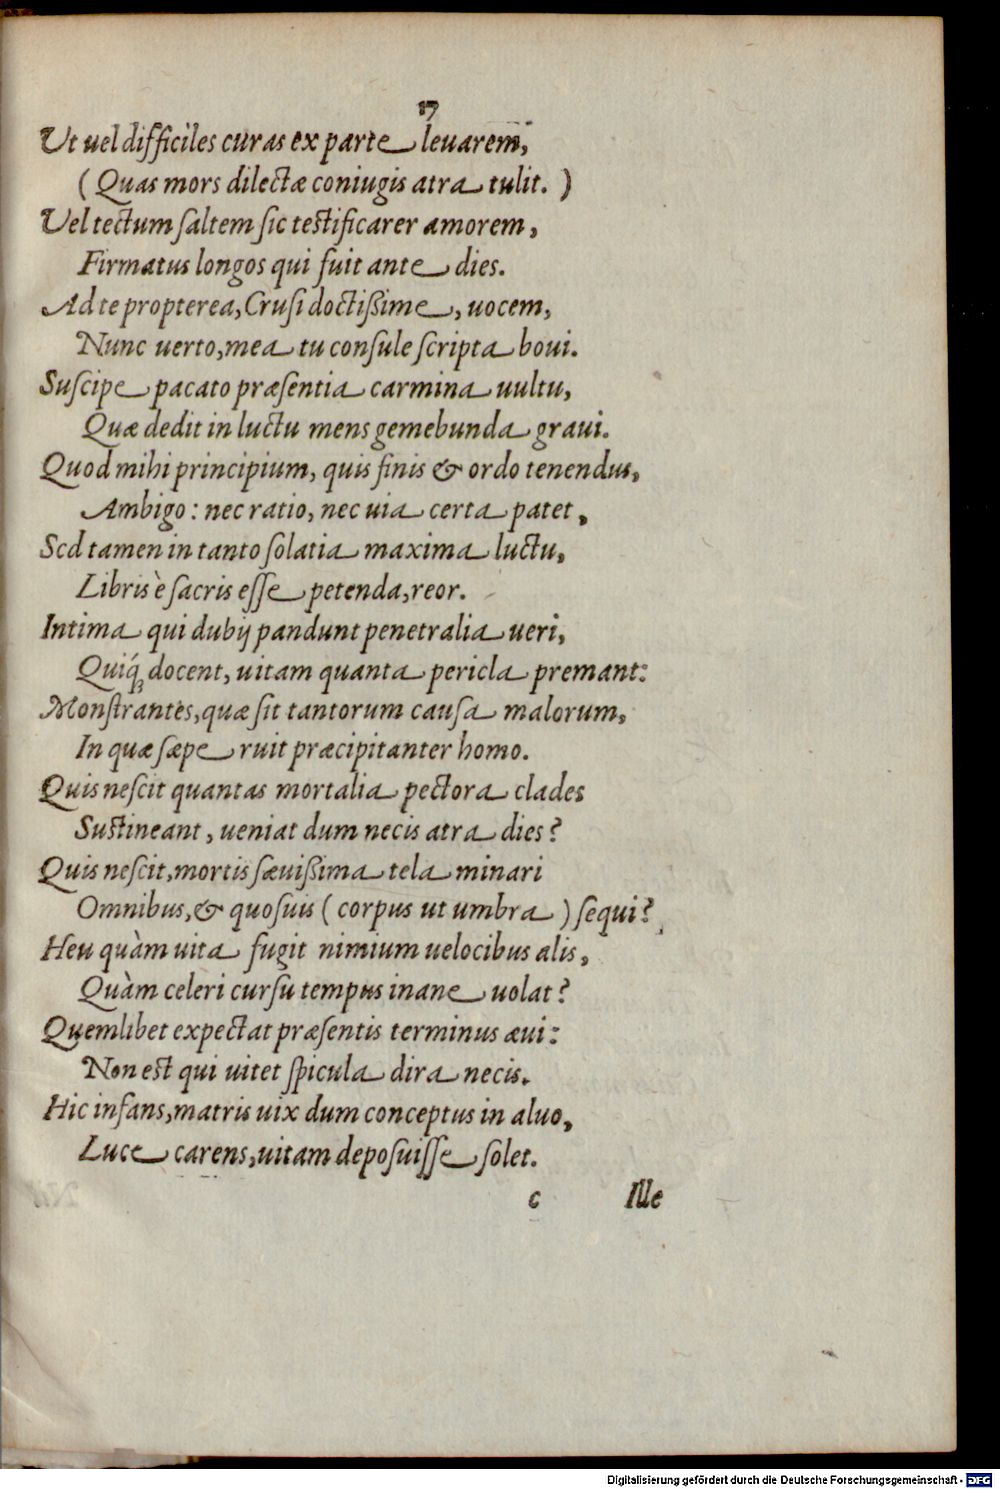 17
Ut uel difficiles curas ex parte leuarem,
(Quas mors dilectæ coniugis atra tulit.)
Uel tectum ſaltem ſic teſtificarer amorem,
Firmatus longos qui fuit ante dies.
Ad te propterea, Cruſi doctißime, uocem,
Nunc uerto, mea tu conſule ſcripta boui.
Suſcipe pacato præſentia carmina uultu,
Quæ dedit in luctu mens gemebunda graui.
Quod mihi principium, quis finis & ordo tenendus,
Ambigo: nec ratio, nec uia certa patet,
Scd tamen in tanto ſolatia maxima luctu,
Libris è ſacris eſſe petenda, reor.
Intima qui dubij pandunt penetralia ueri,
Quiq́ꝫ docent, uitam quanta pericla premant:
Monſtrantes, quæ ſit tantorum cauſa malorum,
In quæ ſæpe ruit præcipitanter homo.
Quis neſcit quantas mortalia pectora clades
Suſtineant, ueniat dum necis atra dies?
Quis neſcit, mortis ſæuißima tela minari
Omnibus, & quoſuis (corpus ut umbra) ſequi?
Heu quàm uita fugit nimium uelocibus alis,
Quàm celeri curſu tempus inane uolat?
Quemlibet expectat præſentis terminus æui:
Non eſt qui uitet ſpicula dira necis.
Hic infans, matris uix dum conceptus in aluo,
Luce carens, uitam depoſuiſſe ſolet.
c Ille
Digitalisierung gefördert durch die Deutsche Forschungsgemeinschaft - DFG